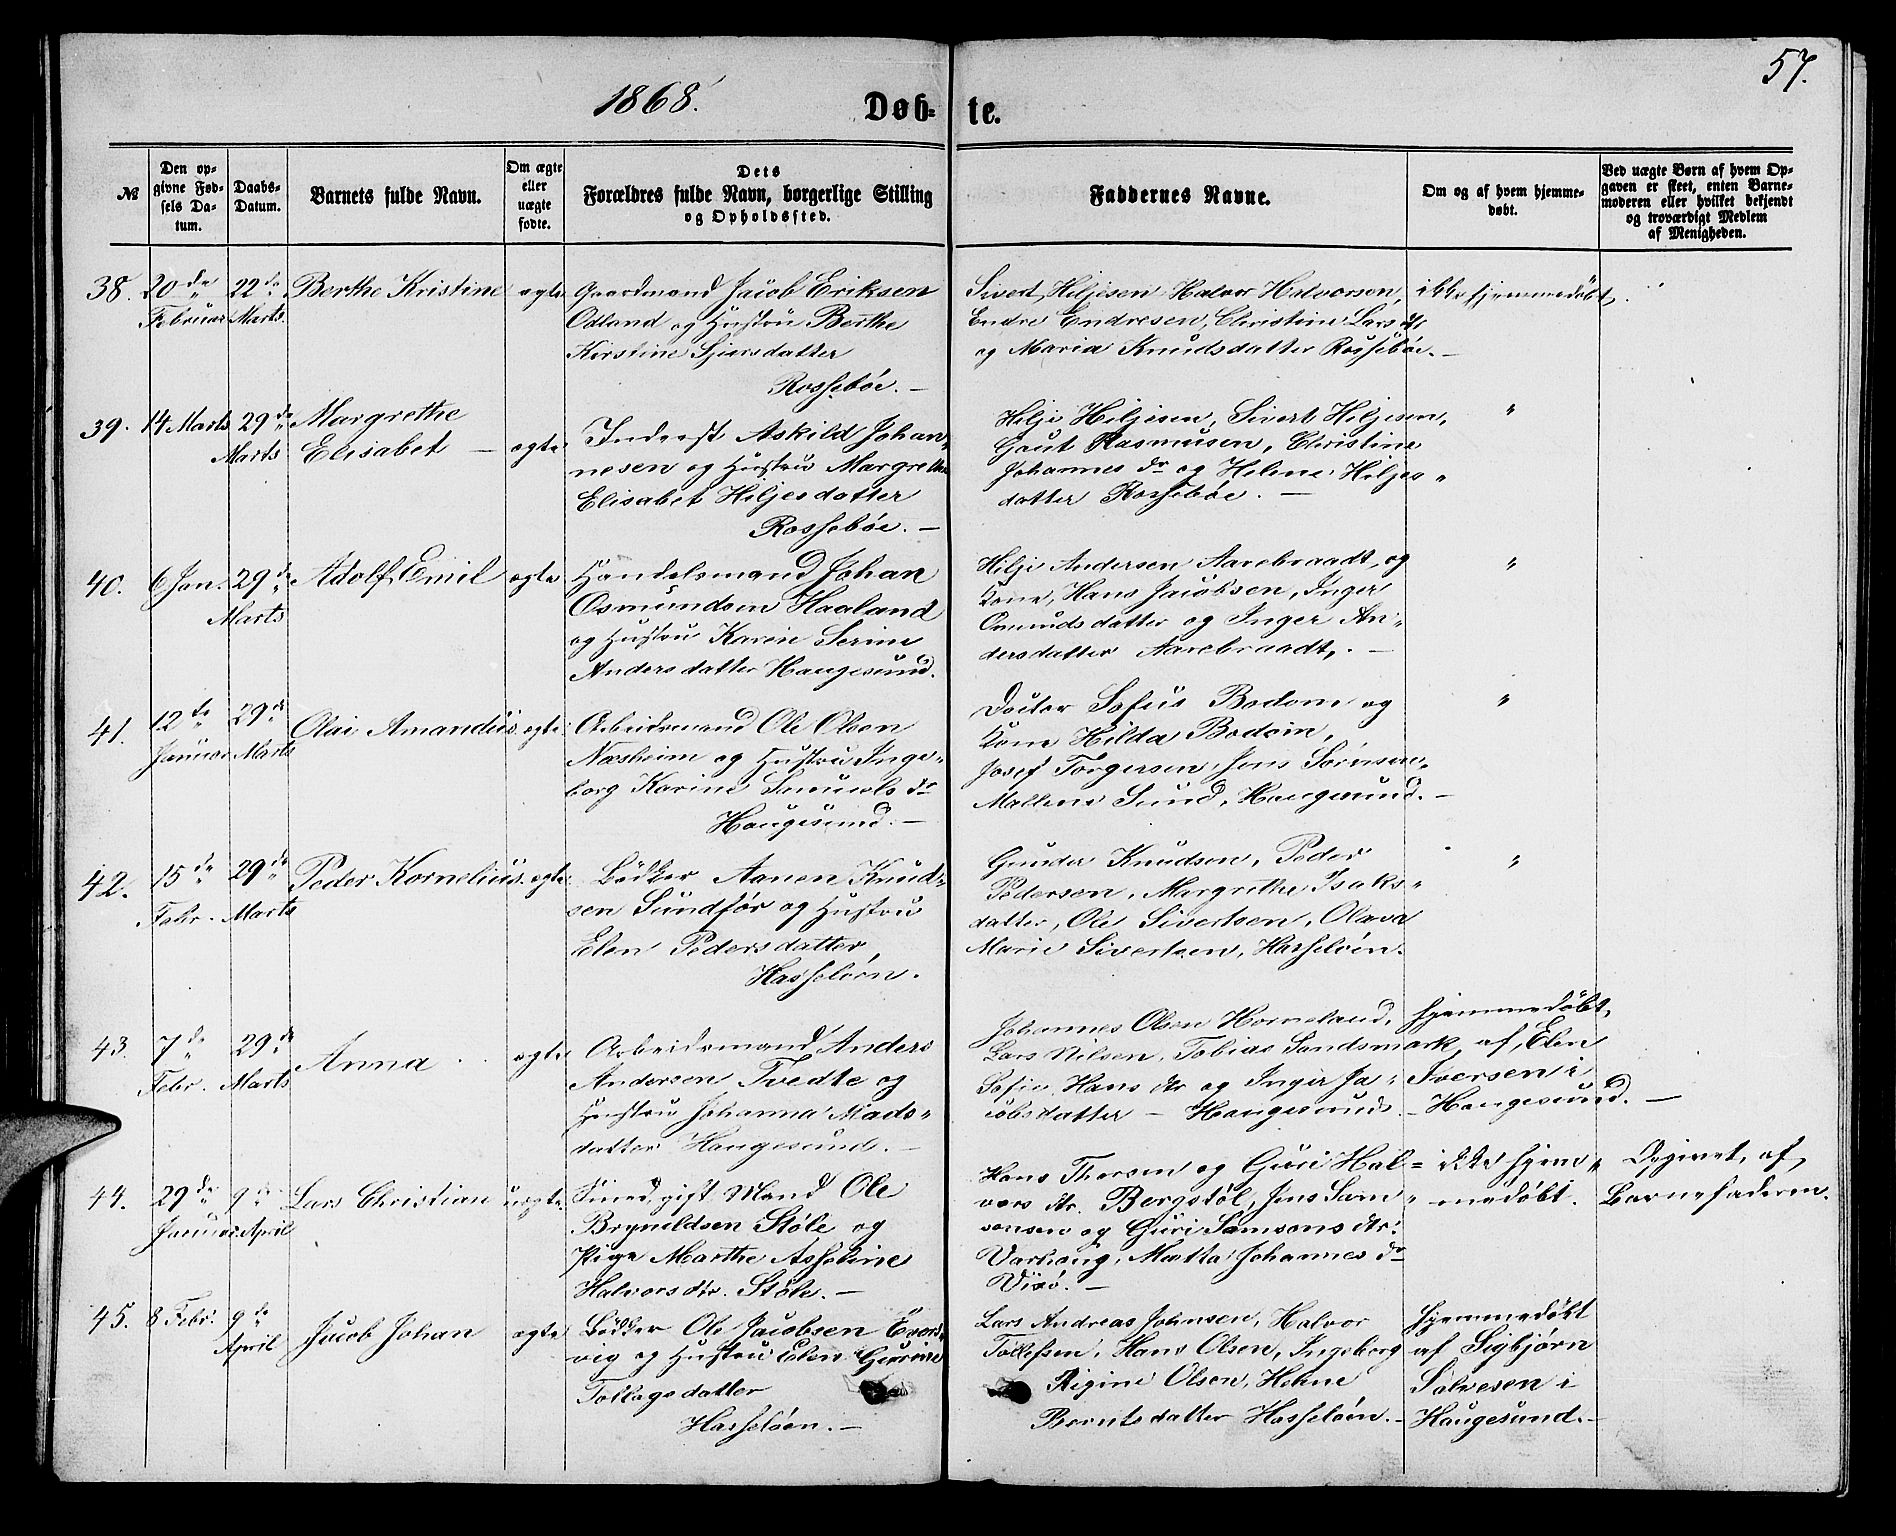 57.
1868. Døb- te.
№
Den opgivne Fødsels Datum.
Daabs-Datum.
Barnets fulde Navn.
Om ægte eller uægte fødte.
Dets Forældres fulde Navn, borgerlige Stilling og Opholdssted.
Faddernes Navne.
Om og af hvem hjemmedøbt.
Ved uægte Børn af hvem Opgaven er skeet, enten Barnemoderen eller hvilket bekjendt og troværdigt Medlem af Menigheden.
38. 20de Februar 22de Marts. Berthe Kristine ægte
Gaardmand Jacob Eriksen
Odland og Hustru Berthe
Kirstine Sjursdatter
Rossebøe. —
Sivert Hiljesen Halvor Halvorsen,
Endre Endresen, Christine Lars dtr
og Maria Knudsdatter Rossebøe. —
ikke hjemmedøbt. "
39. 14 Marts 29de Marts Margrethe
Elisabet — ægte
Inderst Askild Johan-
nesen og Hustru Margrethe
Elisabet Hiljesdatter
Rossebøe. —
Hilje Hiljesen, Sivert Hiljesen,
Gaut Rasmusen, Christine
Johannes dr og Helene Hiljes-
datter Rossebøe. —
"
40. 6 Jan. 29de Marts Adolf Emil ægte
Handelsmand Johan
Osmundsen Haaland
og Hustru Karen Serine
Andersdatter Haugesund.
Hilje Andersen Aarebraadt, og
Kone, Hans Jacobsen, Inger
Omundsdatter og Inger An-
dersdatter Aarebraadt. —
"
41. 12te Januar 29de Marts Olai Amandus. ægte
Arbeidsmand Ole Olsen
Næsheim og Hustru Inge-
borg Karine Samuels dr
Haugesund. —
Doctor Sofus Bodom og
Kone Hilda Bodom,
Josef Torgersen, Jens Sørensen
Mallene Sund, Haugesund. —
"
42. 15de Febr. 29de Marts Peder Kornelius. ægte
Bødker Aanen Knud-
sen Sundfør og Hustru
Elen Pedersdatter,
Hasseløen.
Gunder Knudsen, Peder
Pedersen, Margrethe Isaks-
datter, Ole Sivertsen, Olava
Marie Sivertsen, Hasseløen.
"
43. 7de Febr. 29de Marts Anna ægte
Arbeidsmand Anders
Andersen Tvedte og
Hustru Johanna Mads-
datter Haugesund. —
Johannes Olsen Horneland,
Lars Nilsen, Tobias Sandsmark,
Sofie Hans dtr og Inger Ja-
cobsdatter — Haugesund. —
hjemmedøbt,
af, Elen
Iversen i
Haugesund. —
44. 29de Januar 9de April Lars Christian uægte
Smed, gift Mand Ole
Brynildsen Støle og
Pige Marthe Asseline
Halvorsdtr. Støle. —
Hans Thorsen og Guri Hal-
vors dtr. Bergstøl, Jens Sam-
sonsen og Guri Samsons dtr.
Varhaug, Matta Johannes dr
Vixø. —
ikke hjem-
medøbt.
Opgivet, af
Barnefaderen.
45. 8 Febr. 9de April Jacob Johan ægte
Bødker Ole Jacobsen
vig og Hustru Elen Gurine
Tollagsdatter
Hasseløen. —
Lars Andreas Johnsen, Halvor
Tollefsen, Hans Olsen, Ingeborg
Rigine Olsen, Helene
Berntsdatter Hasseløen. —
hjemmedøbt
af Sigbjørn
Salvesen i
Haugesund. —